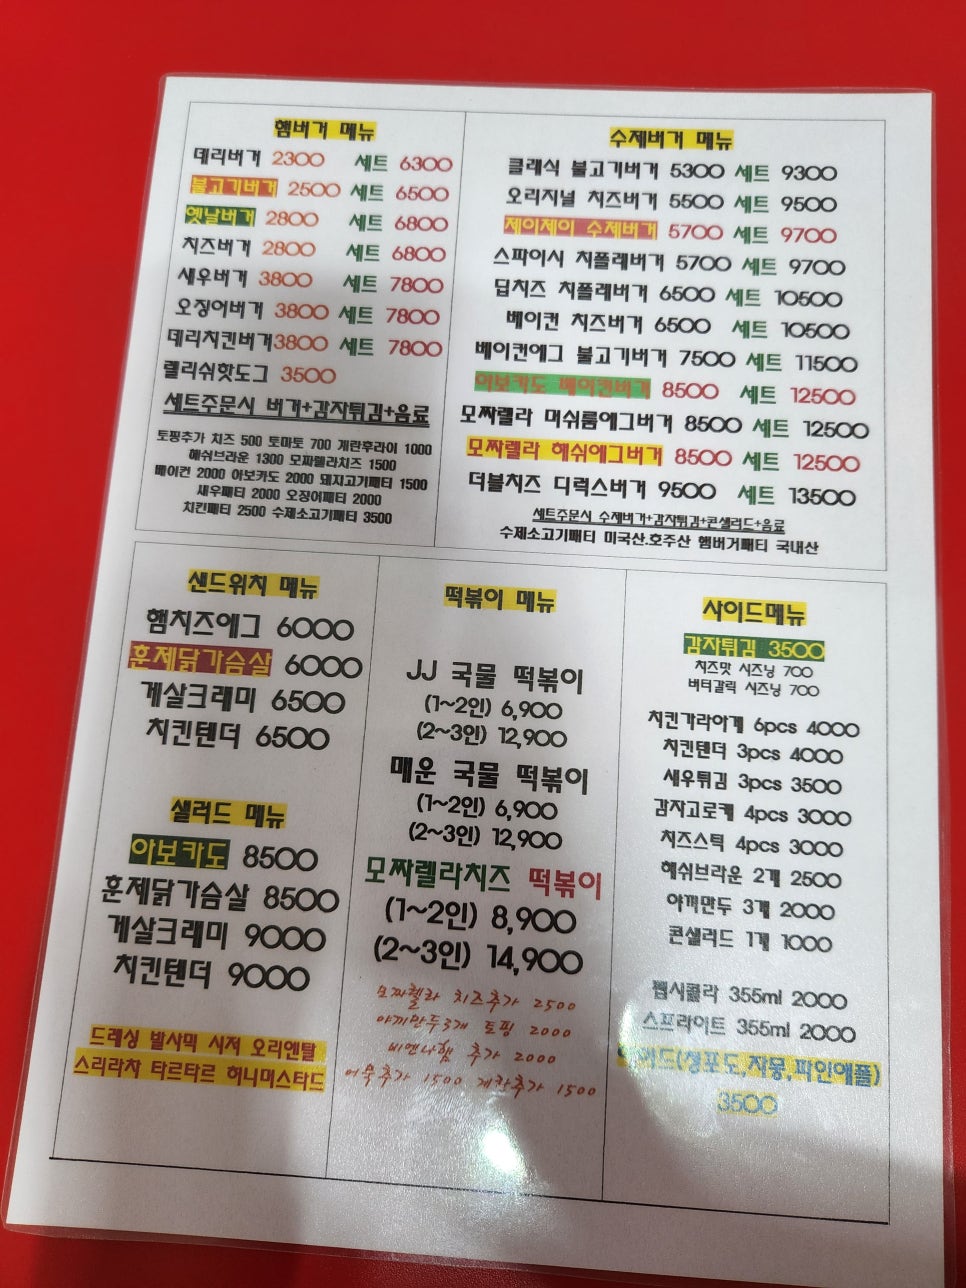 햄버거 메뉴
데리버거 2300 세트 6300
불고기버거 2500 세트 6500
옛날버거 2800 세트 6800
치즈버거 2800 세트 6800
새우버거 3800 세트 7800
오징어버거 3800 세트 7800
데리치킨버거3800 세트 7800
렐리쉬핫도그 3500
세트주문시 버거+감자튀김+음료
토핑추가 치즈 500 토마토 700 계란후라이 1000
해쉬브라운 1300 모짜렐라치즈 1500
베이컨 2000 아보카도 2000 돼지고기패티 1500
새우패티 2000 오징어패티 2000
치킨패티 2500 수제소고기패티 3500
수제버거 메뉴
클래식 불고기버거 5300 세트 9300
오리지널 치즈버거 5500 세트 9500
제이제이 수제버거 5700 세트 9700
스파이시 치폴레버거 5700 세트 9700
딥치즈 치폴레버거 6500 세트 10500
베이컨 치즈버거 6500 세트 10500
베이컨에그 불고기버거 7500 세트 11500
아보카도 베이컨버거 8500 세트 12500
모짜렐라 머쉬룸에그버거 8500 세트 12500
모짜렐라 해쉬에그버거 8500 세트 12500
더블치즈 디럭스버거 9500 세트 13500
세트주문시 수제버거+감자튀김+콘샐러드+음료
수제소고기패티 미국산.호주산 햄버거패티 국내산
샌드위치 메뉴
햄치즈에그 6000
훈제닭가슴살 6000
게살크래미 6500
치킨텐더 6500
샐러드 메뉴
아보카도 8500
훈제닭가슴살 8500
게살크래미 9000
치킨텐더 9000
드레싱 발사믹 시저 오리엔탈
스리라차 타르타르 허니머스타드
떡볶이 메뉴
JJ 국물 떡볶이
(1~2인) 6,900
(2~3인) 12,900
매운 국물 떡볶이
(1~2인) 6,900
(2~3인) 12,900
모짜렐라치즈 떡볶이
(1~2인) 8,900
(2~3인) 14,900
모짜렐라 치즈추가 2500
야끼만두3개 토핑 2000
비엔나햄 추가 2000
어묵추가 1500 계란추가 1500
사이드메뉴
감자튀김 3500
치즈맛 시즈닝 700
버터갈릭 시즈닝 700
치킨가라아게 6pcs 4000
치킨텐더 3pcs 4000
새우튀김 3pcs 3500
감자고로케 4pcs 3000
치즈스틱 4pcs 3000
해쉬브라운 2개 2500
야끼만두 3개 2000
콘샐러드 1개 1000
펩시콜라 355ml 2000
스프라이트 355ml 2000
(청포도,자몽,파인애플)
3500